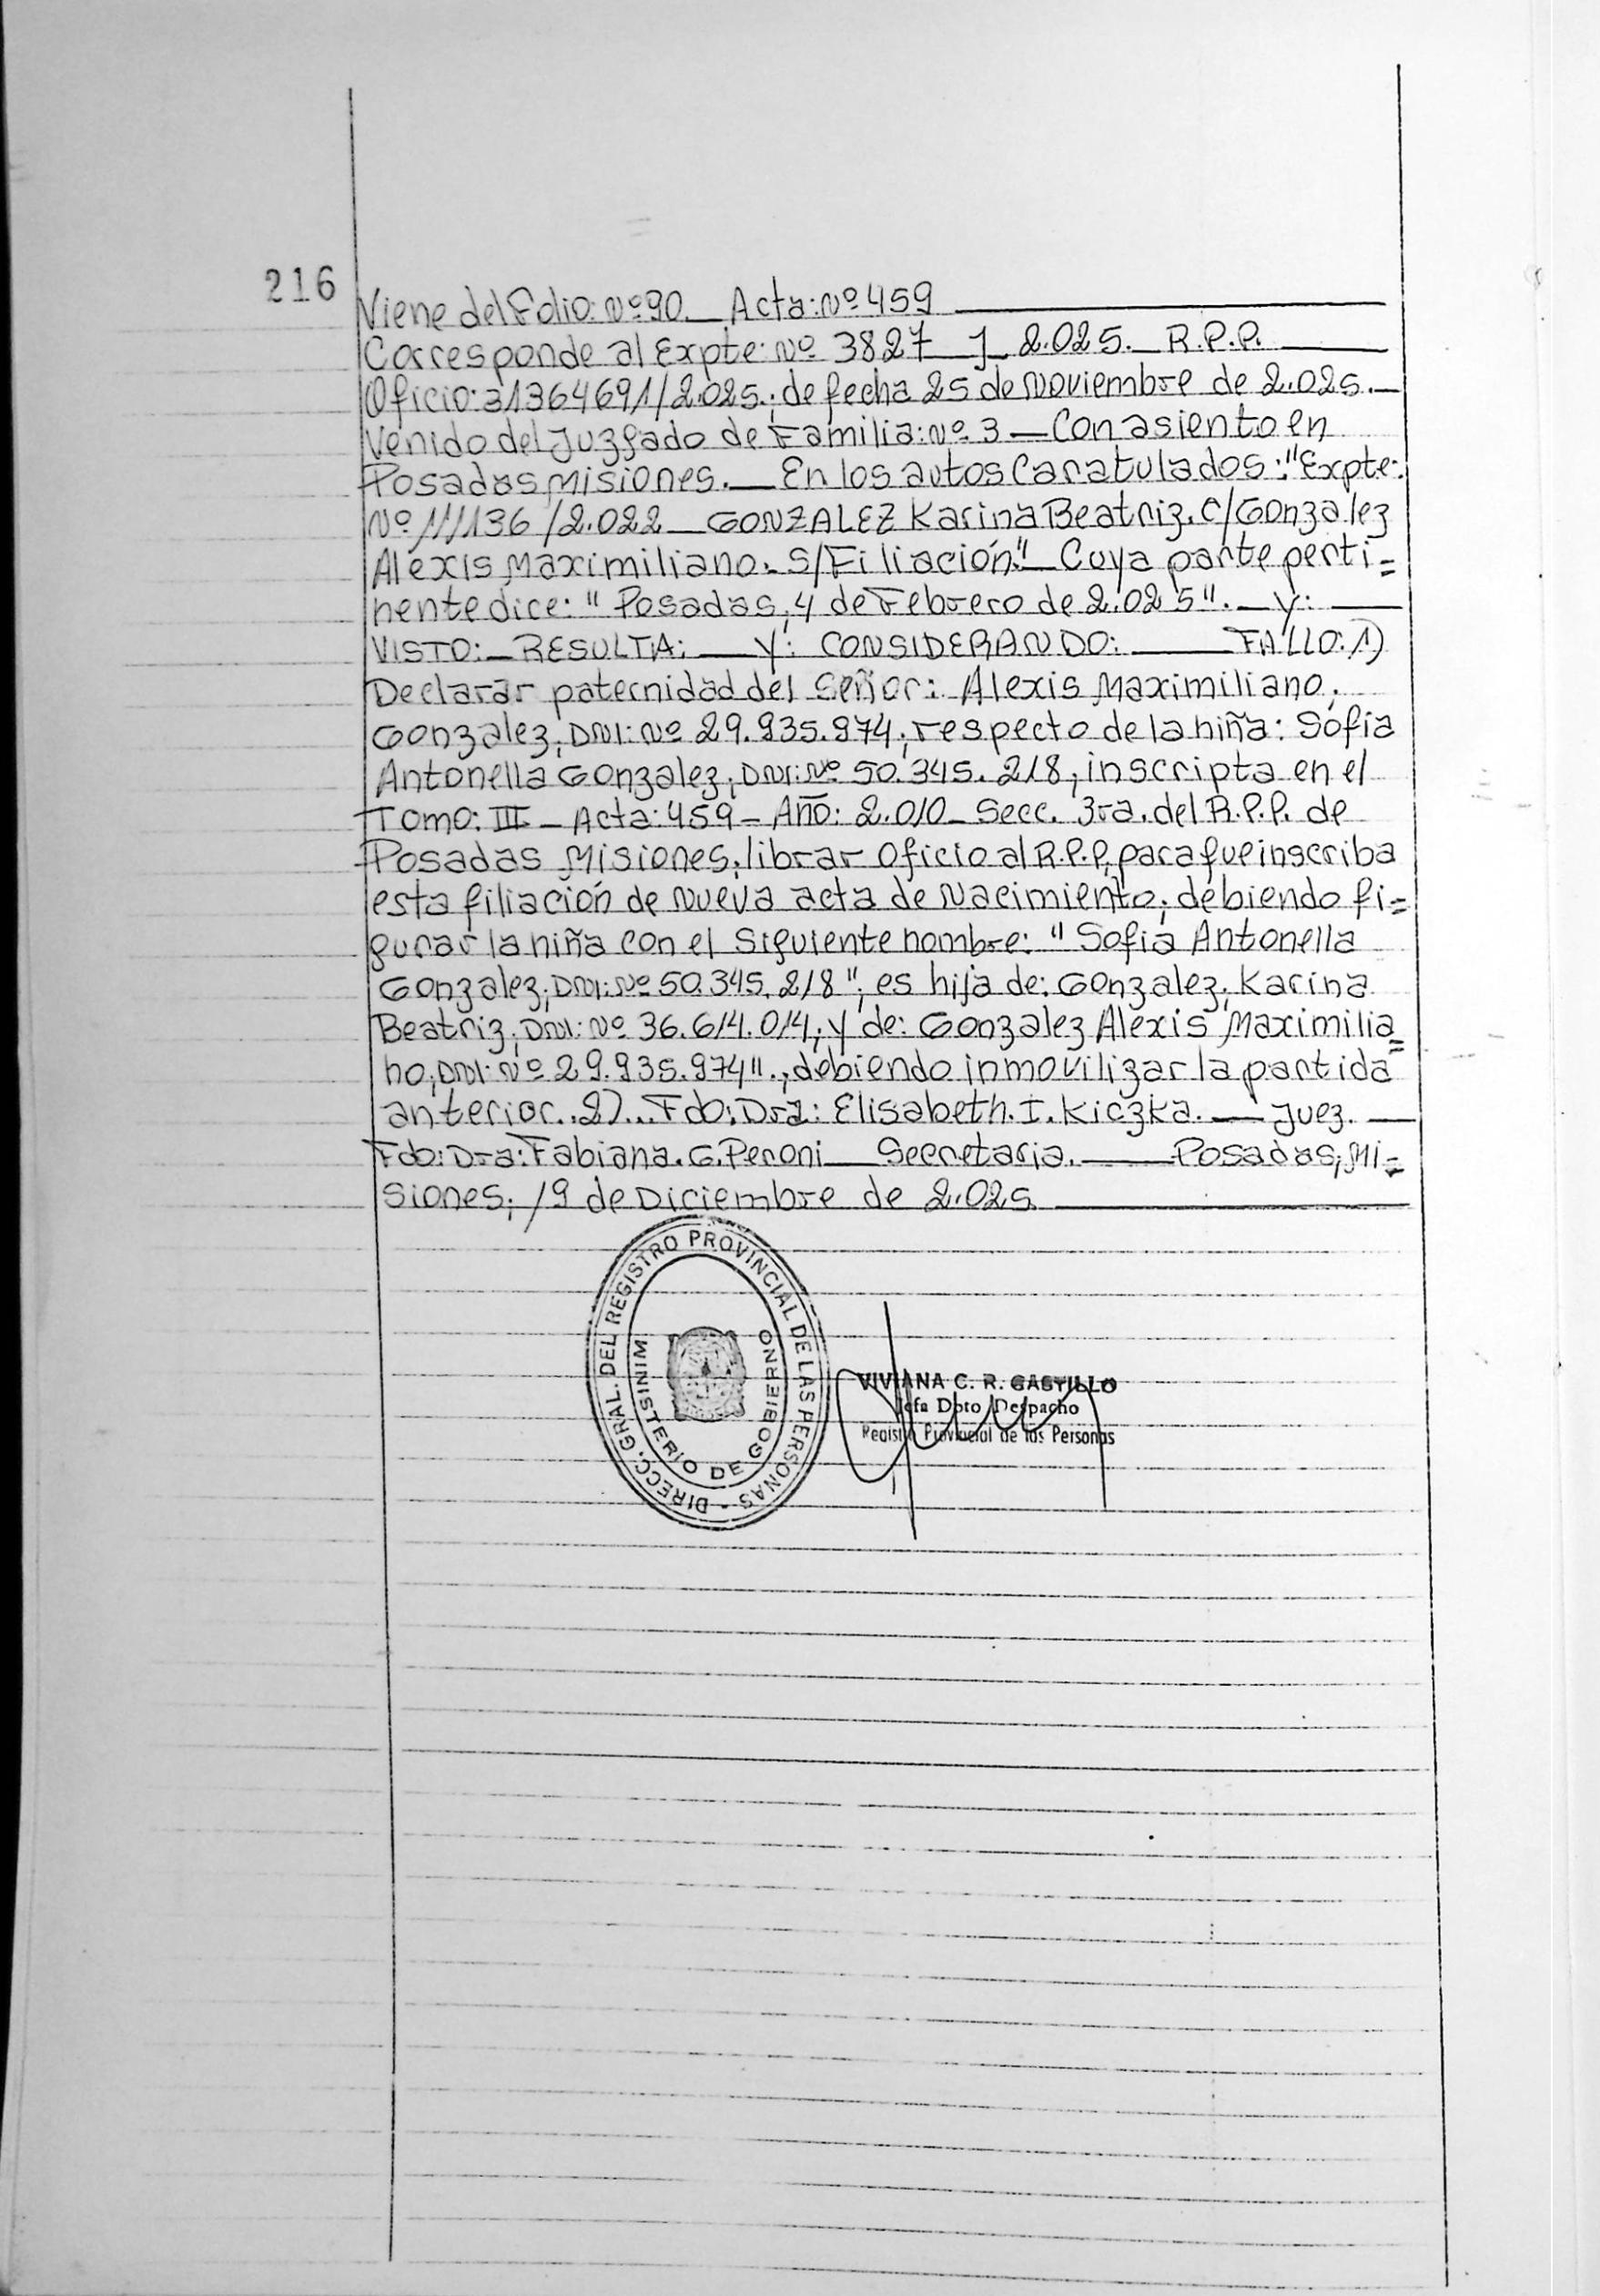 216
Viene del Folio: Nº 90. — Acta: Nº 459
Corresponde al Expte: Nº 3827 J 2.025. — R.P.P.
Oficio: 31364691/2.025.; de fecha 25 de Noviembre de 2.025. —
Venido del Juzgado de Familia: Nº 3 — Con asiento en
Posadas, Misiones. — En los autos Caratulados: "Expte:
Nº 111136/2.022 — GONZALEZ Karina Beatriz. C/Gonzalez
Alexis Maximiliano. S/Filiación." Cuya parte perti=
nente dice: "Posadas, 4 de Febrero de 2.025". — Y: —
VISTO: — RESULTA: — Y: CONSIDERANDO: — FALLO: 1)
Declarar paternidad del Señor: Alexis Maximiliano,
Gonzalez, DNI: Nº 29.935.974; respecto de la niña: Sofia
Antonella Gonzalez; DNI: Nº 50.345.218, inscripta en el
Tomo: III — Acta: 459 — Año: 2.010 — Secc. 3ra. del R.P.P. de
Posadas Misiones; librar Oficio al R.P.P. para que inscriba
esta filiación de Nueva acta de Nacimiento; debiendo fi=
gurar la niña con el siguiente nombre: "Sofia Antonella
Gonzalez; DNI: Nº 50.345.218", es hija de: Gonzalez, Karina
Beatriz; DNI: Nº 36.614.014; y de: Gonzalez Alexis Maximilia=
no; DNI: Nº 29.935.974"., debiendo inmovilizar la partida
anterior..2)... Fdo: Dra: Elisabeth. I. Kiczka. — Juez. —
Fdo: Dra: Fabiana. G. Peroni — Secretaria. — Posadas, Mi=
siones; 19 de Diciembre de 2.025.
DIRECC. GRAL. DEL REGISTRO PROVINCIAL DE LAS PERSONAS -
MINISTERIO DE GOBIERNO
VIVIANA C. R. CASTILLO
Jefa Dpto Despacho
Registro Provincial de las Personas